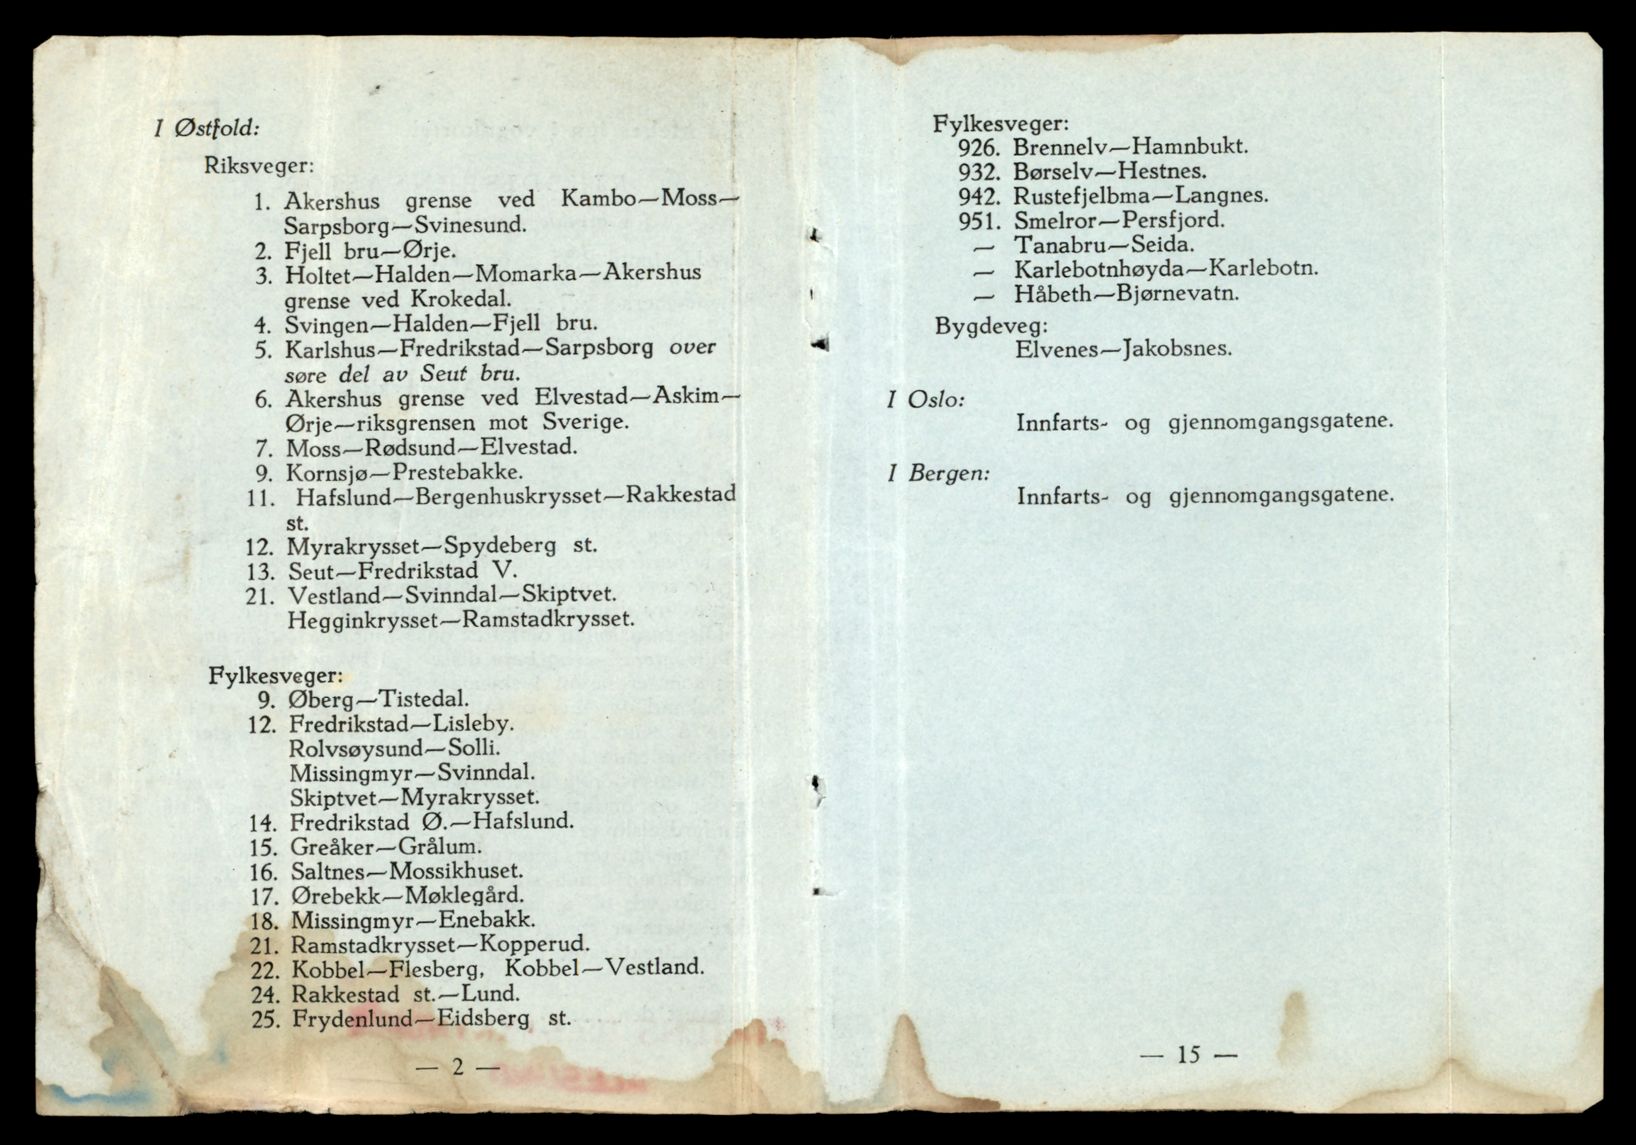 I Østfold:
Riksveger:
1. Akershus grense ved Kambo—Moss—
Sarpsborg—Svinesund.
2. Fjell bru—Ørje.
3. Holtet—Halden—Momarka—Akershus
grense ved Krokedal.
4. Svingen—Halden—Fjell bru.
5. Karlshus—Fredrikstad—Sarpsborg over
søre del av Seut bru.
6. Akershus grense ved Elvestad—Askim—
Ørje—riksgrensen mot Sverige.
7. Moss—Rødsund—Elvestad.
9. Kornsjø—Prestebakke.
11. Hafslund—Bergenhuskrysset—Rakkestad
st.
12. Myrakrysset—Spydeberg st.
13. Seut—Fredrikstad V.
21. Vestland—Svinndal—Skiptvet.
Hegginkrysset—Ramstadkrysset.
Fylkesveger:
9. Øberg—Tistedal.
12. Fredrikstad—Lisleby.
Rolvsøysund—Solli.
Missingmyr—Svinndal.
Skiptvet—Myrakrysset.
14. Fredrikstad Ø.—Hafslund.
15. Greåker—Grålum.
16. Saltnes—Mossikhuset.
17. Ørebekk—Møklegård.
18. Missingmyr—Enebakk.
21. Ramstadkrysset—Kopperud.
22. Kobbel—Flesberg, Kobbel—Vestland.
24. Rakkestad st.—Lund.
25. Frydenlund—Eidsberg st.
— 2 —
Fylkesveger:
926. Brennelv—Hamnbukt.
932. Børselv—Hestnes.
942. Rustefjelbma—Langnes.
951. Smelror—Persfjord.
— Tanabru—Seida.
— Karlebotnhøyda—Karlebotn.
— Håbeth—Bjørnevatn.
Bygdeveg:
Elvenes—Jakobsnes.
I Oslo:
Innfarts- og gjennomgangsgatene.
I Bergen:
Innfarts- og gjennomgangsgatene.
— 15 —